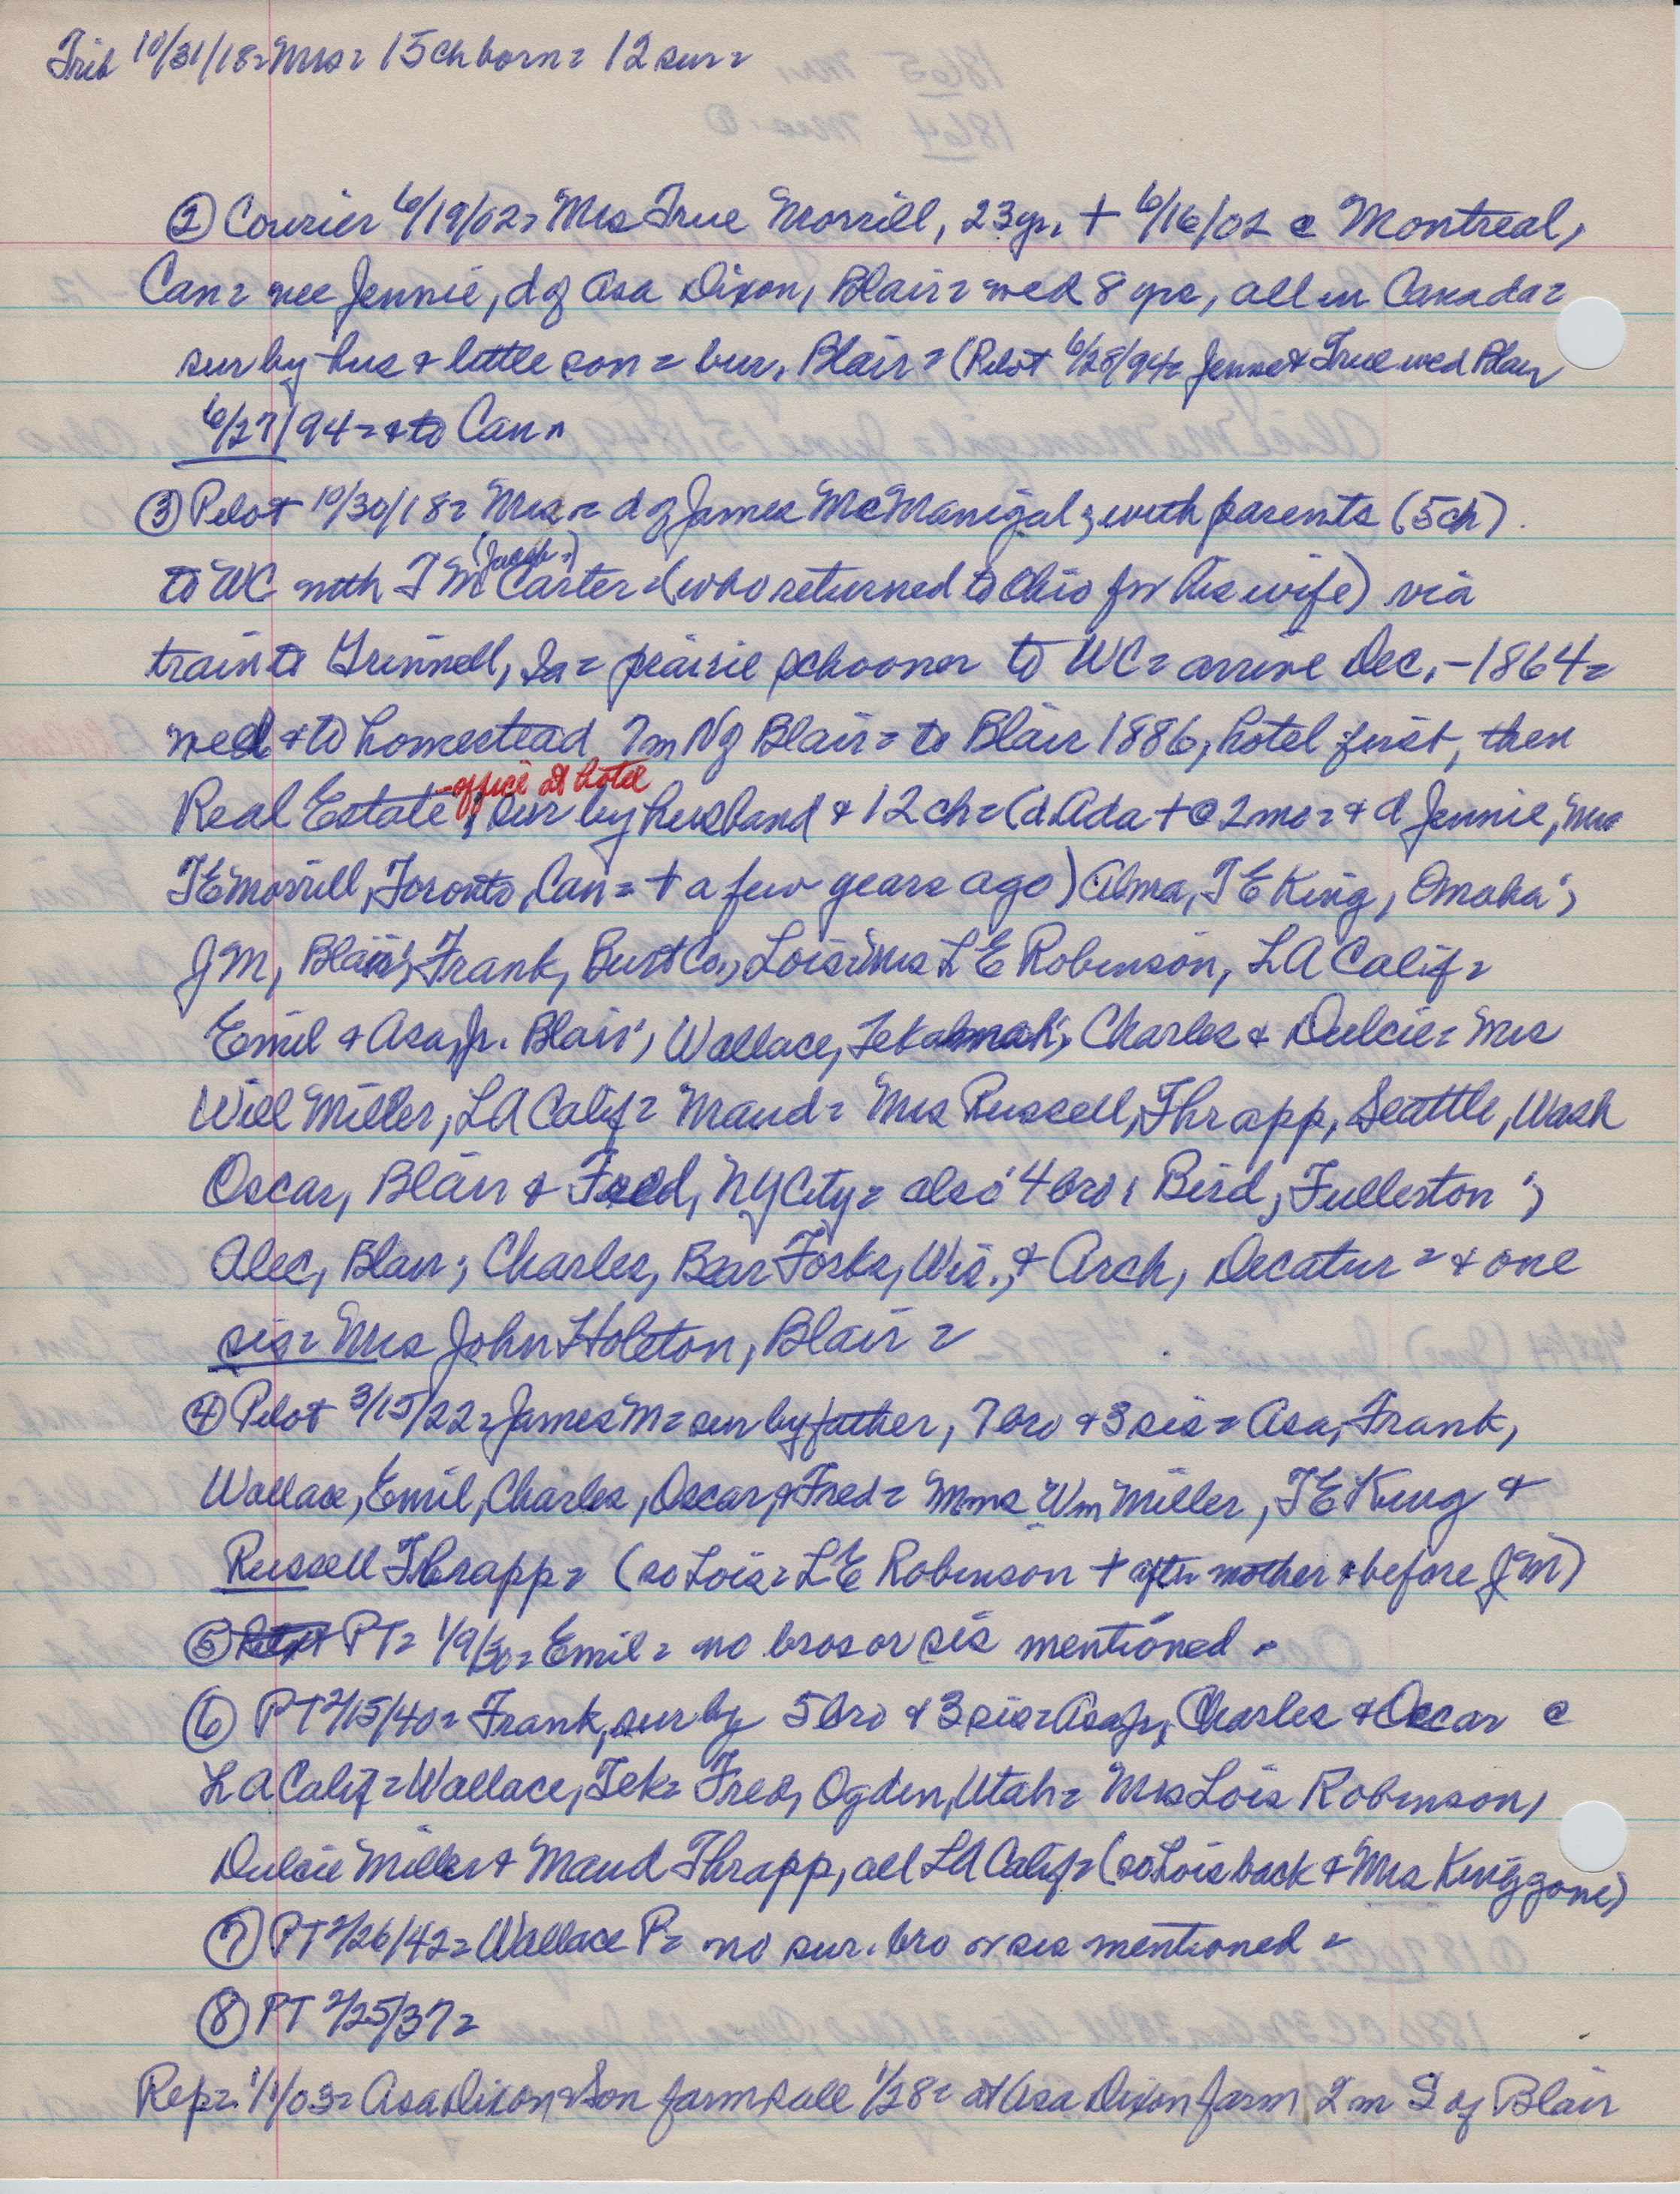 Trib 10/31/18= Mrs= 15 ch born= 12 sur=
② Courier 6/19/02= Mrs True Morrill, 23yr, + 6/16/02 @ Montreal,
Can= nee Jennie, d of Asa Dixon, Blair= wed 8 yrs, all in Canada=
sur by hus & little son= bur. Blair= (Pilot 6/28/94= Jennie & True wed Blair
6/27/94= & to Can=
③ Pilot 10/30/18= Mrs= d of James McManigal; with parents (5ch).
to WC with T M (Jacob=) Carter= (who returned to Ohio for his wife) via
train to Grinnell, Ia= prairie schooner to WC= arrive Dec,-1864=
wed & to homestead 7m N of Blair= to Blair 1886, hotel first, then
Real Estate -office at hotel; sur by husband & 12 ch= (d Ada + @ 2mo= & d Jennie, Mrs
T E Morrill, Toronto, Can= + a few years ago) Alma, T E King, Omaha;
J M, Blair; Frank, Burt Co., Lois= Mrs L E Robinson, LA Calif=
Emil & Asa, Jr. Blair; Wallace, Tekamah; Charles & Dulcie= Mrs
Will Miller, LA Calif= Maud= Mrs Russell, Thrapp, Seattle, Wash
Oscar, Blair & Fred, NY City= also 4 bro: Bird, Fullerton;
Alec, Blair; Charles, Bear Forks, Wis., & Arch, Decatur= & one
sis= Mrs John Holston, Blair=
④ Pilot 3/15/22= James M= sur by father, 7 bro & 3 sis= Asa, Frank,
Wallace, Emil, Charles, Oscar, & Fred= Mmes Wm Miller, T E King &
Russell Thrapp= (so Lois= L E Robinson + after mother & before J M)
⑤ PT= 1/9/30= Emil= no bros or sis mentioned=
⑥ PT 2/15/40= Frank, sur by 5 bro & 3 sis= Asa Jr, Charles & Oscar @
LA Calif= Wallace, Tek= Fred, Ogden, Utah= Mrs Lois Robinson,
Dulcie Miller & Maud Thrapp, all LA Calif= (so Lois back & Mrs King gone)
⑦ PT 2/26/42= Wallace P= no sur. bro or sis mentioned=
⑧ PT 2/25/37=
Rep= 1/1/03= Asa Dixon & Son farm sale 1/28= at Asa Dixon farm 2m S of Blair